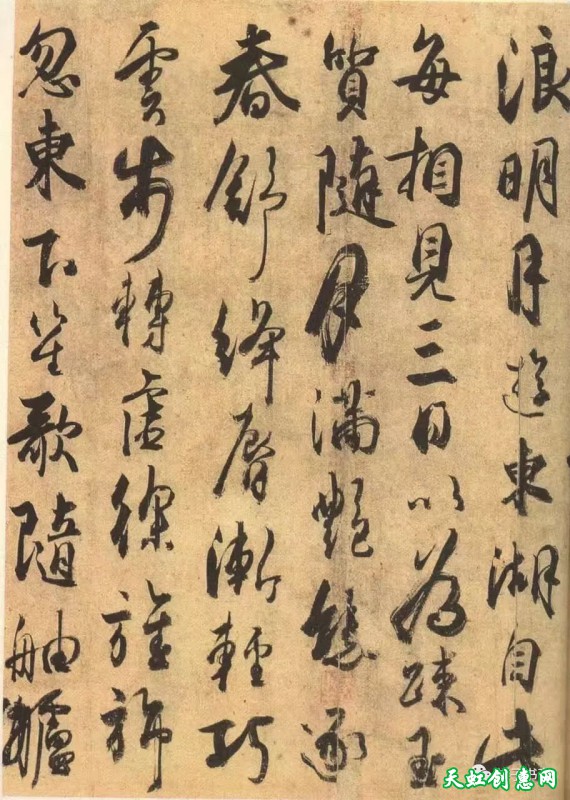 浪明月遊東湖自此
每相見三日以為疎玉
質隨月滿艷態逐
春舒絳脣漸輕巧
雲步轉虛徐旌旆
忽東下笙歌隨舳艫
天虹创惠网